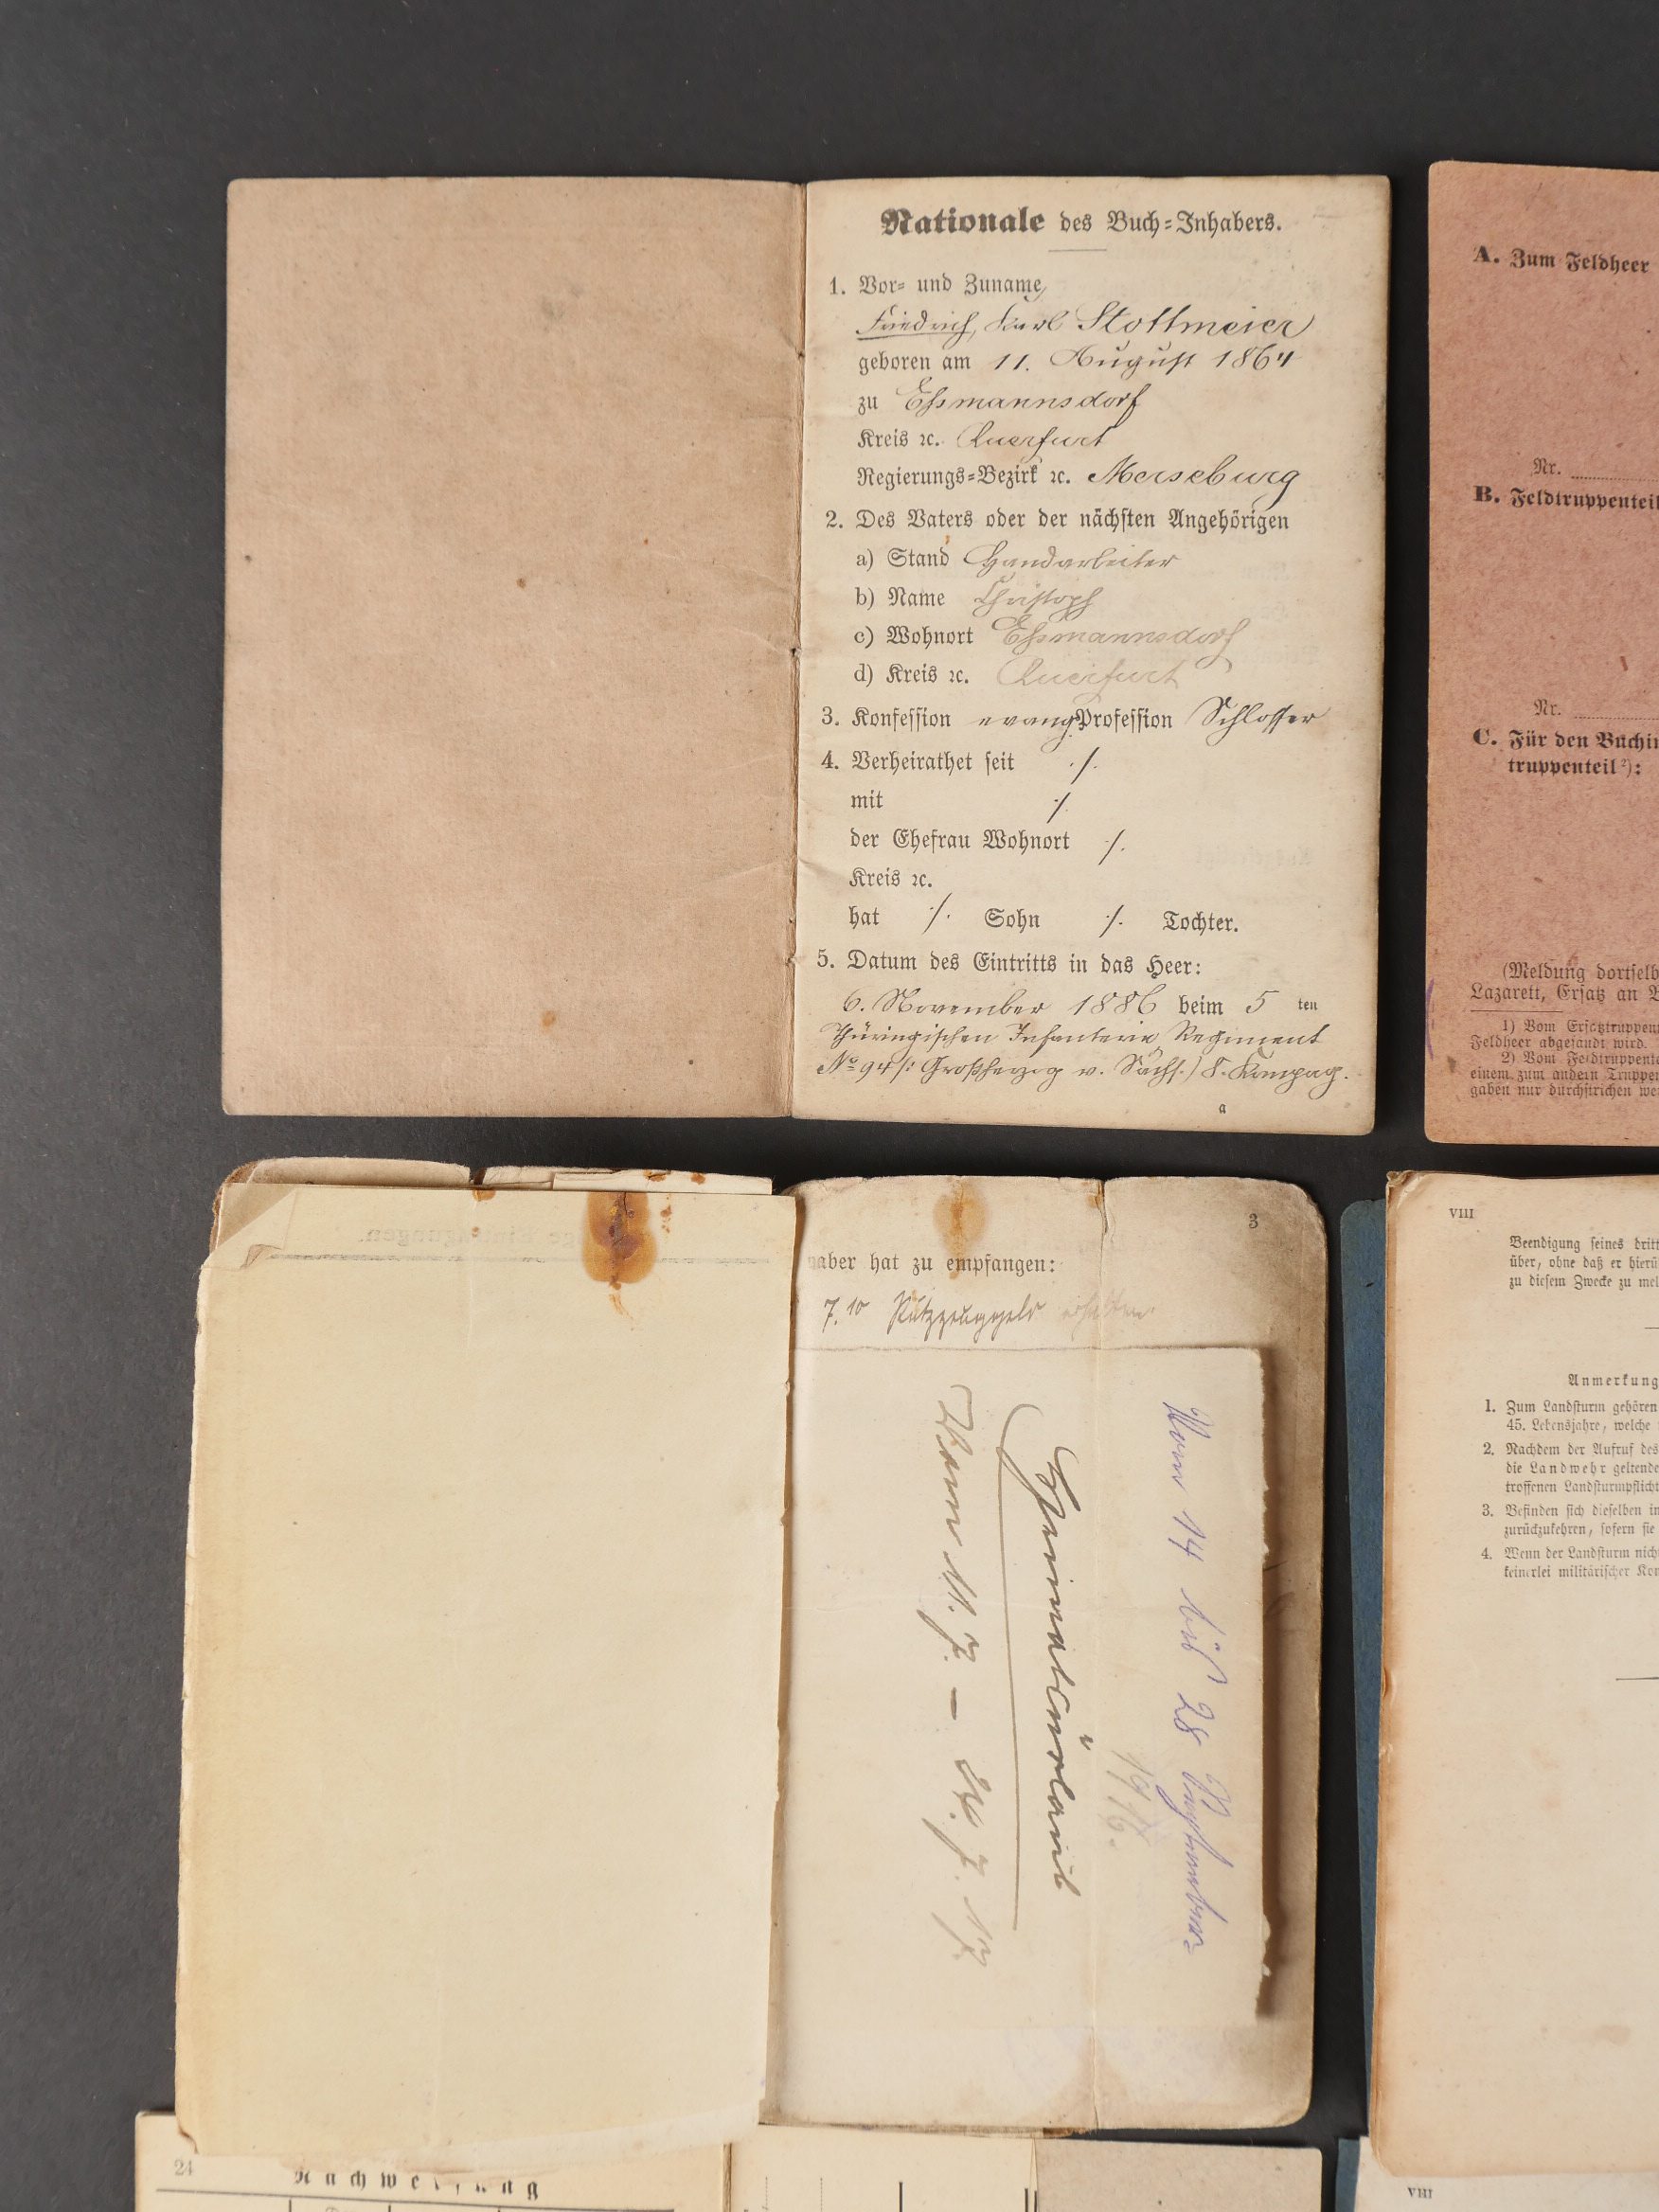 Nationale des Buch-Inhabers.
1. Vor- und Zuname
Friedrich, Karl Stollmeier
geboren am 11. August 1864
zu Eßmannsdorf
Kreis ꝛc. Querfurt
Regierungs-Bezirk ꝛc. Merseburg
2. Des Vaters oder der nächsten Angehörigen
a) Stand Handarbeiter
b) Name Christoph
c) Wohnort Eßmannsdorf
d) Kreis ꝛc. Querfurt
3. Konfession evang. Profession Schlosser
4. Verheirathet seit ./.
mit ./.
der Ehefrau Wohnort ./.
Kreis ꝛc.
hat ./. Sohn ./. Tochter.
5. Datum des Eintritts in das Heer:
6. November 1886 beim 5 ten
Thüringischen Infanterie Regiment
No 94 /: Großherzog v. Sachs.) 8. Kompag.
a
A. Zum Feldheer
Nr.
B. Feldtruppenteil
Nr.
C. Für den Buchin
truppenteil²):
(Meldung dortselb
Lazarett, Ersatz an
1) Vom Ersatztruppen
Feldheer abgesandt wird.
2) Vom Feldtruppente
einem zum andern Truppen
gaben nur durchstrichen we
3
haber hat zu empfangen:
7.10 Putzzeuggeld erhalten
Vom 14 bis 28 September
1916.
Heimatsurlaub
Vom 11. 7. – 24. 7. 17
VIII
Beendigung seines dritt
über, ohne daß er hierü
zu diesem Zwecke zu mel
Anmerkung
1. Zum Landsturm gehören
45. Lebensjahre, welche
2. Nachdem der Aufruf des
die Landwehr geltende
troffenen Landsturmpflicht
3. Befinden sich dieselben in
zurückzukehren, sofern sie
4. Wenn der Landsturm nich
keinerlei militärischer Kon
24
Nachweisung
VIII